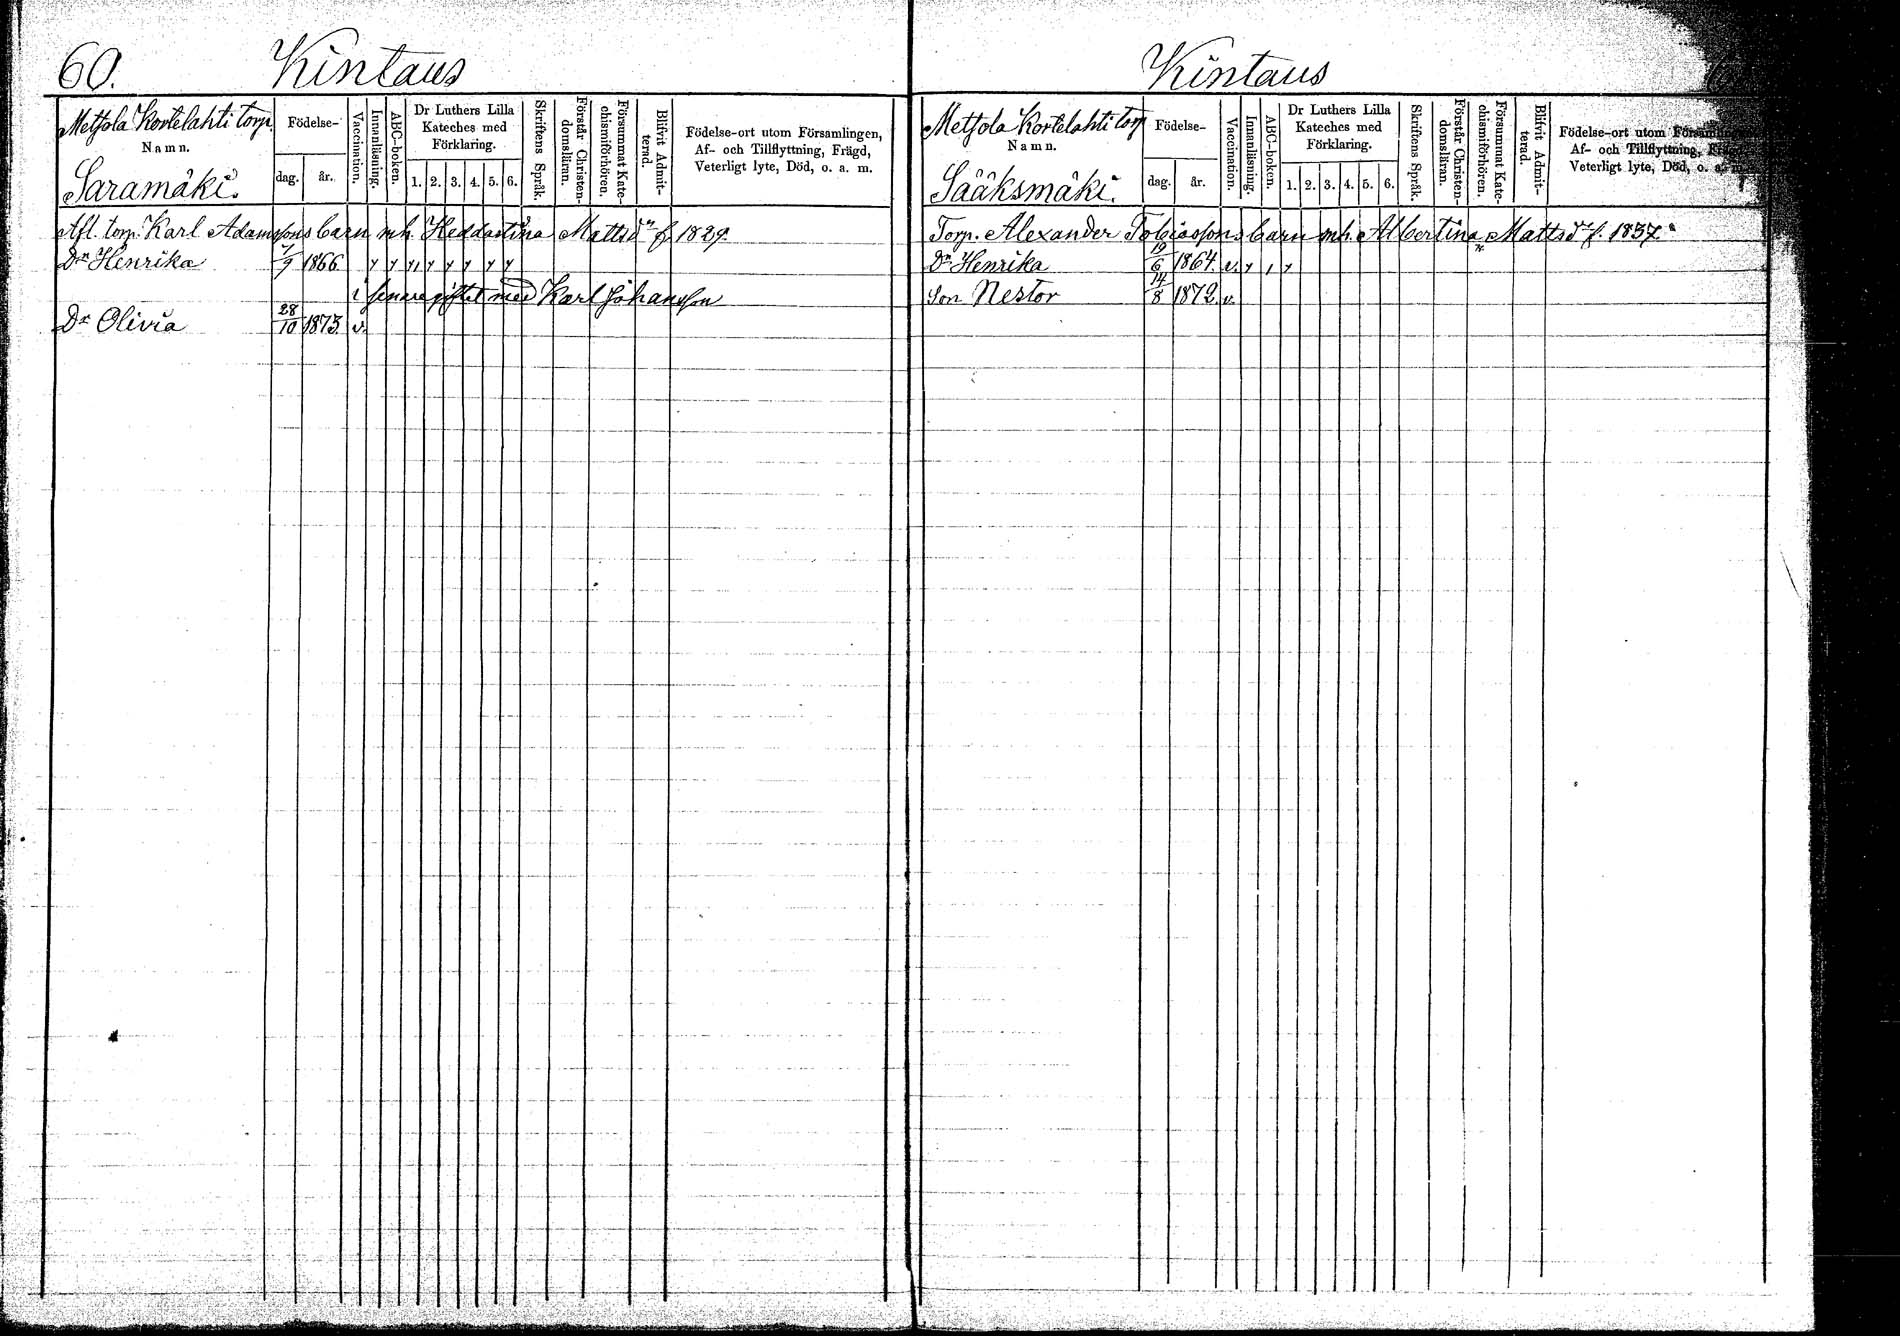 60.
Kintaus
Metsola Kortelahti torp.
Namn.
Saramäki.
Födelse-
dag.
år.
Vaccination.
Innanläsning.
ABC-boken.
Dr Luthers Lilla
Kateches med
Förklaring.
1. 2. 3. 4. 5. 6.
Skriftens Språk.
Förstår Christen-
domsläran.
Försummat Kate-
chismiförhören.
Blifvit Admit-
terad.
Födelse-ort utom Församlingen,
Af- och Tillflyttning, Frägd,
Veterligt lyte, Död, o. a. m.
Afl. torp. Karl Adamssons barn m.h. Heddastina Mattsdr f. 1829.
Dr Henrika 7/9 1866.
i senare giftet med Karl Johansson
Dr Olivia 28/10 1873. v.
Kintaus
Metsola Kortelahti torp
Namn.
Sääksmäki.
Födelse-
dag.
år.
Vaccination.
Innanläsning.
ABC-boken.
Dr Luthers Lilla
Kateches med
Förklaring.
1. 2. 3. 4. 5. 6.
Skriftens Språk.
Förstår Christen-
domsläran.
Försummat Kate-
chismiförhören.
Blifvit Admit-
terad.
Födelse-ort utom Församlingen
Af- och Tillflyttning, Frägd
Veterligt lyte, Död, o. a. m
Torp. Alexander Tobiassons barn m.h. Albertina Mattsdr f. 1837.
Dr Henrika 19/6 1864. v.
Son Nestor 14/8 1872. v.